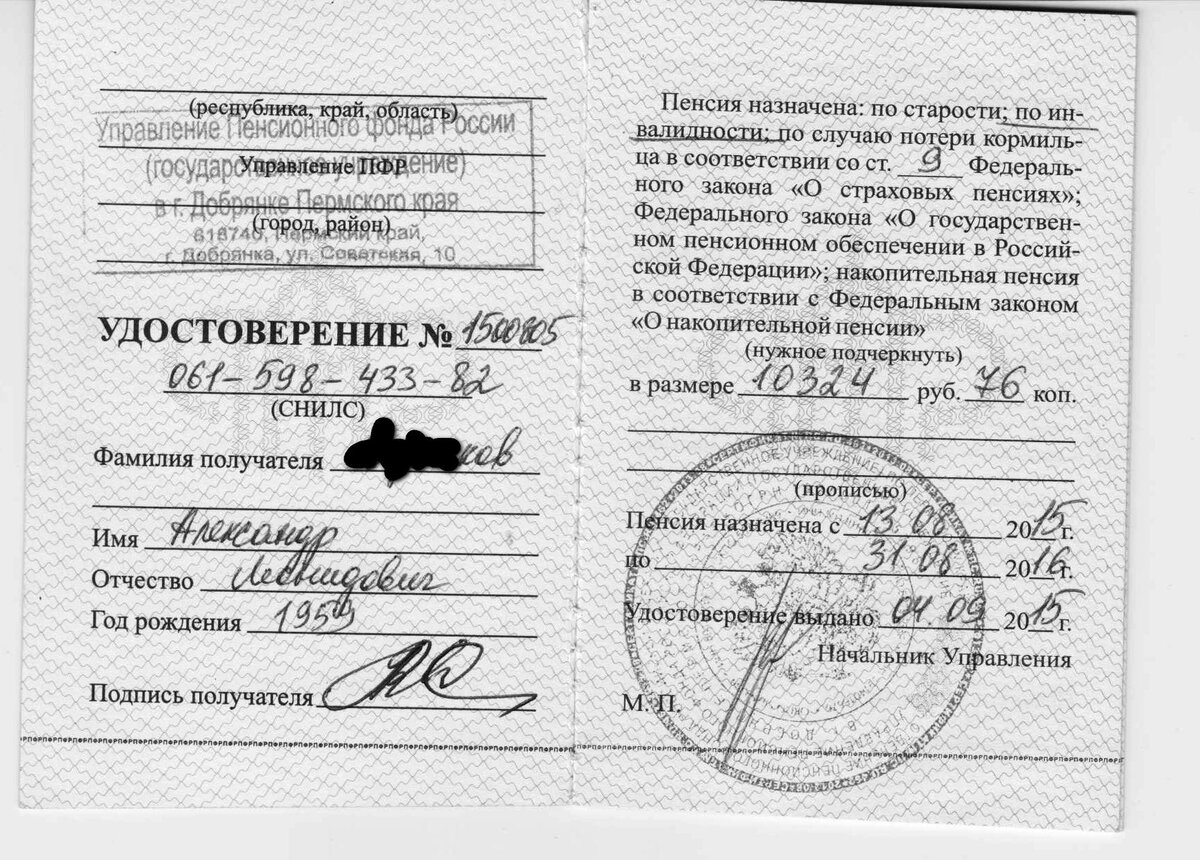 (республика, край, область)
Управление Пенсионного фонда России
(государственное учреждение)
Управление ПФР
в г. Добрянке Пермского края
(город, район)
618740, Пермский край,
г. Добрянка, ул. Советская, 10
УДОСТОВЕРЕНИЕ № 1500805
061-598-433-82
(СНИЛС)
Фамилия получателя ков
Имя Александр
Отчество Леонидович
Год рождения 1959
Подпись получателя
Пенсия назначена: по старости; по ин-
валидности; по случаю потери кормиль-
ца в соответствии со ст. 9 Федераль-
ного закона «О страховых пенсиях»;
Федерального закона «О государствен-
ном пенсионном обеспечении в Россий-
ской Федерации»; накопительная пенсия
в соответствии с Федеральным законом
«О накопительной пенсии»
(нужное подчеркнуть)
в размере 10324 руб. 76 коп.
(прописью)
Пенсия назначена с 13 08 2015 г.
по 31 08 2016 г.
Удостоверение выдано 04 09 2015 г.
Начальник Управления
М. П.